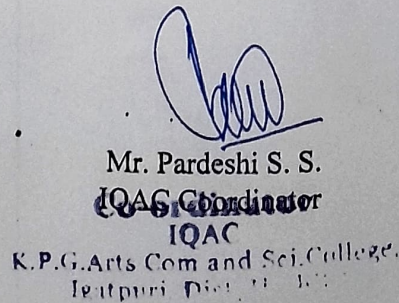 Mr. Pardeshi S. S.
IQAC Coordinator
Co-ordinator
IQAC
K.P.G.Arts Com and Sci.College.
Igatpuri